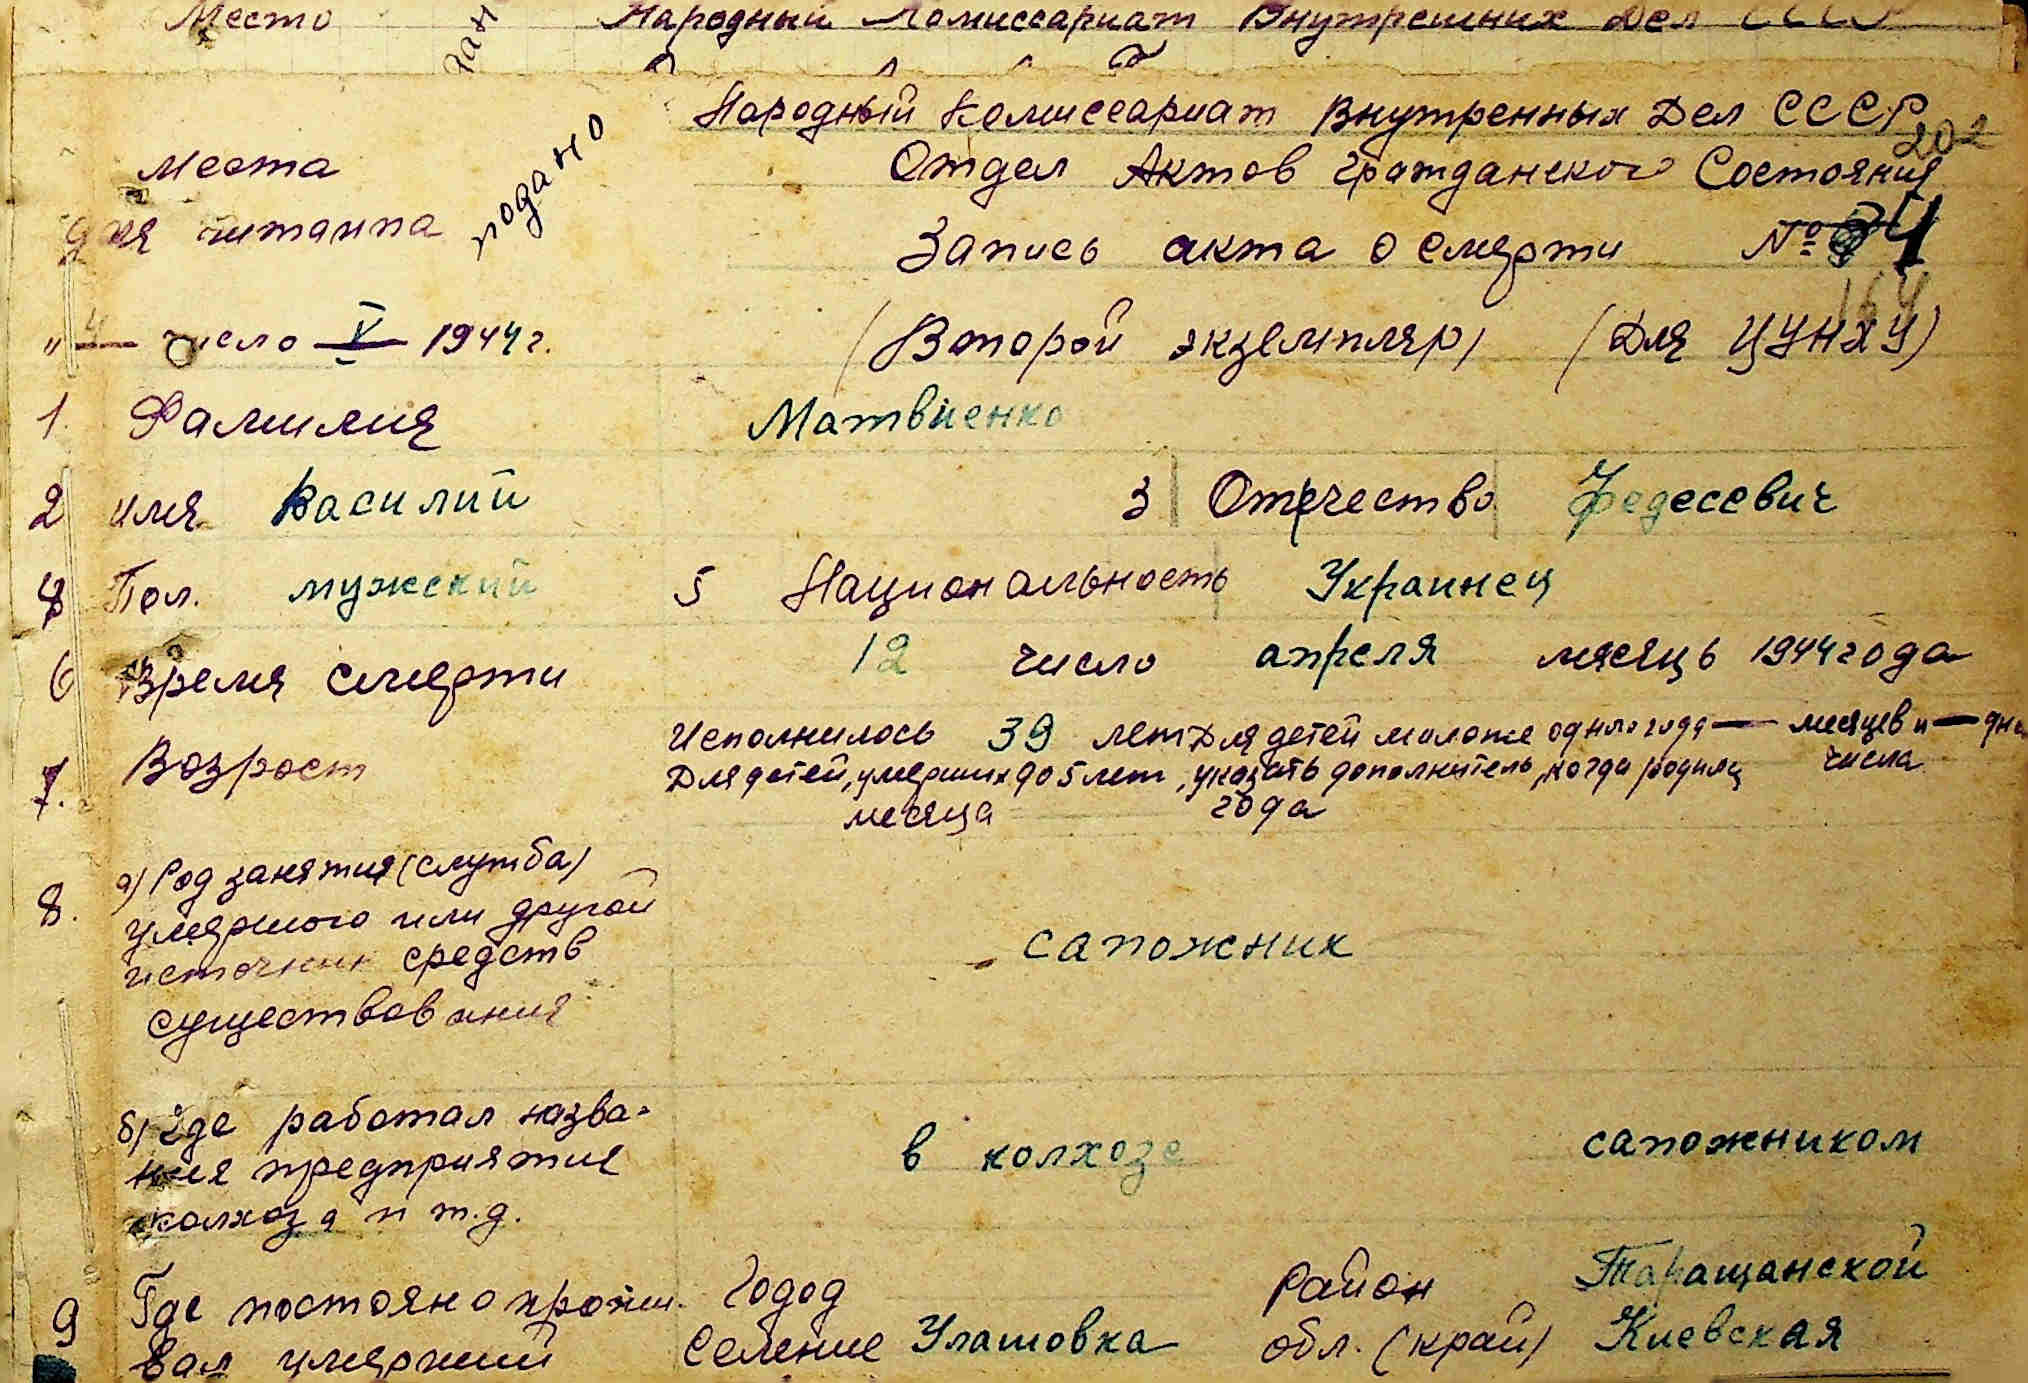 Место Народный Комиссариат Внутренних Дел СССР
подано
Народный Комиссариат Внутренных Дел СССР
202
Места Отдел Актов Гражданского Состояния
для штампа Запись акта о смерти №
164
"4" число V 1944 г. (Второй экземпляр) (Для ЦУНХУ)
1. Фамилия Матвиенко
2 имя Василий 3 Отечество Федесевич
4 Пол. мужский 5 Национальность Украинец
6 Время смерти 12 число апреля месяць 1944 года
7. Возрост Исполнилось 39 лет Для детей моложе одного года — месяцев и — дн
Для детей, умерших до 5 лет, указать дополнитель, когда родилц числа
месяца года
8. а) Род занятия (служба)
умяршого или другой
источник средств сапожник
существования
б) Где работал назва-
ния предприятие в колхозе сапожником
колхоза и т.д.
9 Где постояно прожи- Годод Район Таращанской
вал умерший Селение Улашовка обл. (край) Киевская